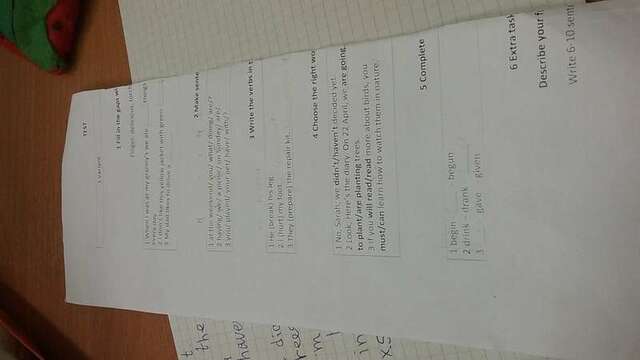 TEST
1 variant
1 Fill in the gaps
finger, delicious,
1 When I was at my granny's we ate things
everyday.
2 I don't like this yellow jacket with green
3 My dad likes to drive a
2 Make sente
1 at the weekend/ you/ what/ doing/ are/?
2 having/ we/ a picnic/ on Sunday/ are/
3 you/ played/ your pet/ have/ with/?
3 Write the verbs in t
1 He (break) his leg
2 I (hurt) my foot
3 They (prepare) the repair kit.
4 Choose the right wo
1 No, Sarah, we didn't/haven't decided yet.
2 Look. Here's the diary. On 22 April, we are going
to plant/are planting trees.
3 If you will read/read more about birds, you
must/can learn how to watch them in nature.
5 Complete
1 begin - - begun
2 drink – drank
3 - gave - given
6 Extra task
Describe your f
Write 6-10 sent
the
have
die
rees
m
in